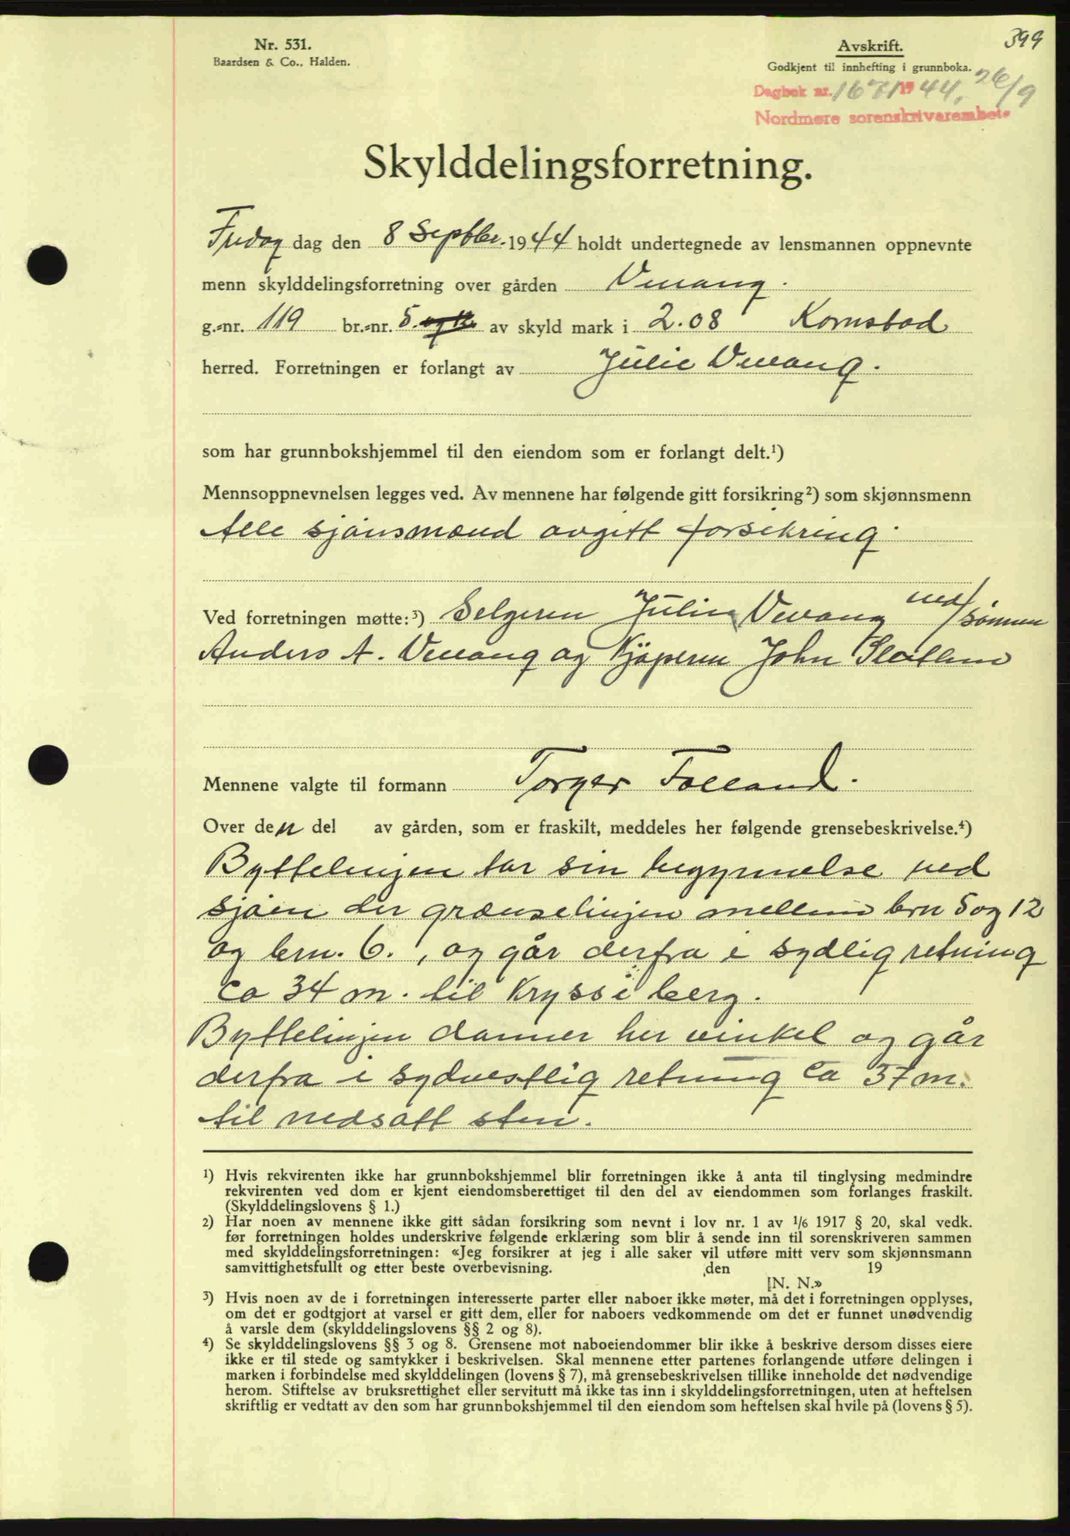 399
Nr. 531.
Baardsen & Co., Halden.
Avskrift.
Godkjent til innhefting i grunnboka.
Dagbok nr. 1671 1944, 26/9
Nordmøre sorenskrivarembete
Skylddelingsforretning.
Fredag dag den 8 Septbr. 1944 holdt undertegnede av lensmannen oppnevnte
menn skylddelingsforretning over gården Vevang.
g.-nr. 119 br.-nr. 5 og 12 av skyld mark i 2.08 Kornstad
herred. Forretningen er forlangt av Julie Vevang.
som har grunnbokshjemmel til den eiendom som er forlangt delt.¹)
Mennsoppnevnelsen legges ved. Av mennene har følgende gitt forsikring²) som skjønnsmenn
Alle sjönsmænd avgitt forsikring.
Ved forretningen møtte:³) Selgeren Julie Vevang ved/sönnen
Anders A. Vevang og Kjöperen John
Mennene valgte til formann Torger Folland.
Over den del av gården, som er fraskilt, meddeles her følgende grensebeskrivelse.⁴)
Byttelinjen tar sin begynnelse ved
sjöen der grænselinjen mellem brn 5 og 12
og brn. 6., og går derfra i sydlig retning
ca 34 m. til Kryss i berg.
Byttelinjen danner her vinkel og går
derfra i sydvestlig retning ca 37 m.
til nedsatt sten.
¹) Hvis rekvirenten ikke har grunnbokshjemmel blir forretningen ikke å anta til tinglysing medmindre
rekvirenten ved dom er kjent eiendomsberettiget til den del av eiendommen som forlanges fraskilt.
(Skylddelingslovens § 1.)
²) Har noen av mennene ikke gitt sådan forsikring som nevnt i lov nr. 1 av ¹/₆ 1917 § 20, skal vedk.
før forretningen holdes underskrive følgende erklæring som blir å sende inn til sorenskriveren sammen
med skylddelingsforretningen: «Jeg forsikrer at jeg i alle saker vil utføre mitt verv som skjønnsmann
samvittighetsfullt og etter beste overbevisning. den 19
[N. N.»
³) Hvis noen av de i forretningen interesserte parter eller naboer ikke møter, må det i forretningen opplyses,
om det er godtgjort at varsel er gitt dem, eller for naboers vedkommende om det er funnet unødvendig
å varsle dem (skylddelingslovens §§ 2 og 8).
⁴) Se skylddelingslovens §§ 3 og 8. Grensene mot naboeiendommer blir ikke å beskrive dersom disses eiere
ikke er til stede og samtykker i beskrivelsen. Skal mennene etter partenes forlangende utføre delingen i
marken i forbindelse med skylddelingen (lovens § 7), må grensebeskrivelsen tillike inneholde det nødvendige
herom. Stiftelse av bruksrettighet eller servitutt må ikke tas inn i skylddelingsforretningen, uten at heftelsen
skriftlig er vedtatt av den som har grunnbokshjemmel til den eiendom som heftelsen skal hvile på (lovens § 5).